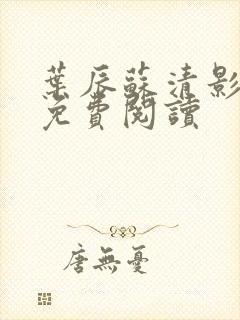 葉辰蘇清影
免費閱讀
唐無憂